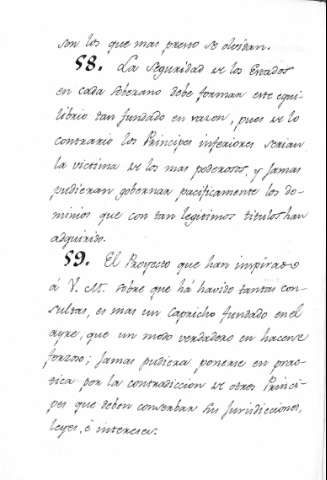 son los que mas presto se olvidan.
58. La seguridad de los Estados
en cada soberano debe formar este equi-
librio tan fundado en razon, pues de lo
contrario los Principes inferiores serian
la victima de los mas poderosos, y jamas
pudieran gobernar pacificamente los do-
minios que con tan legitimos titulos han
adquirido.
59. El Proyecto que han inspirado
á V. M. sobre que há havido tantas con-
sultas, es mas un capricho fundado en el
ayre, que un modo verdadero en hacerse
forzoso; jamas pudiera ponerse en prac-
tica por la contradiccion de otros Princi-
pes que deben conserbar sus Jurisdicciones,
leyes, é intereses.